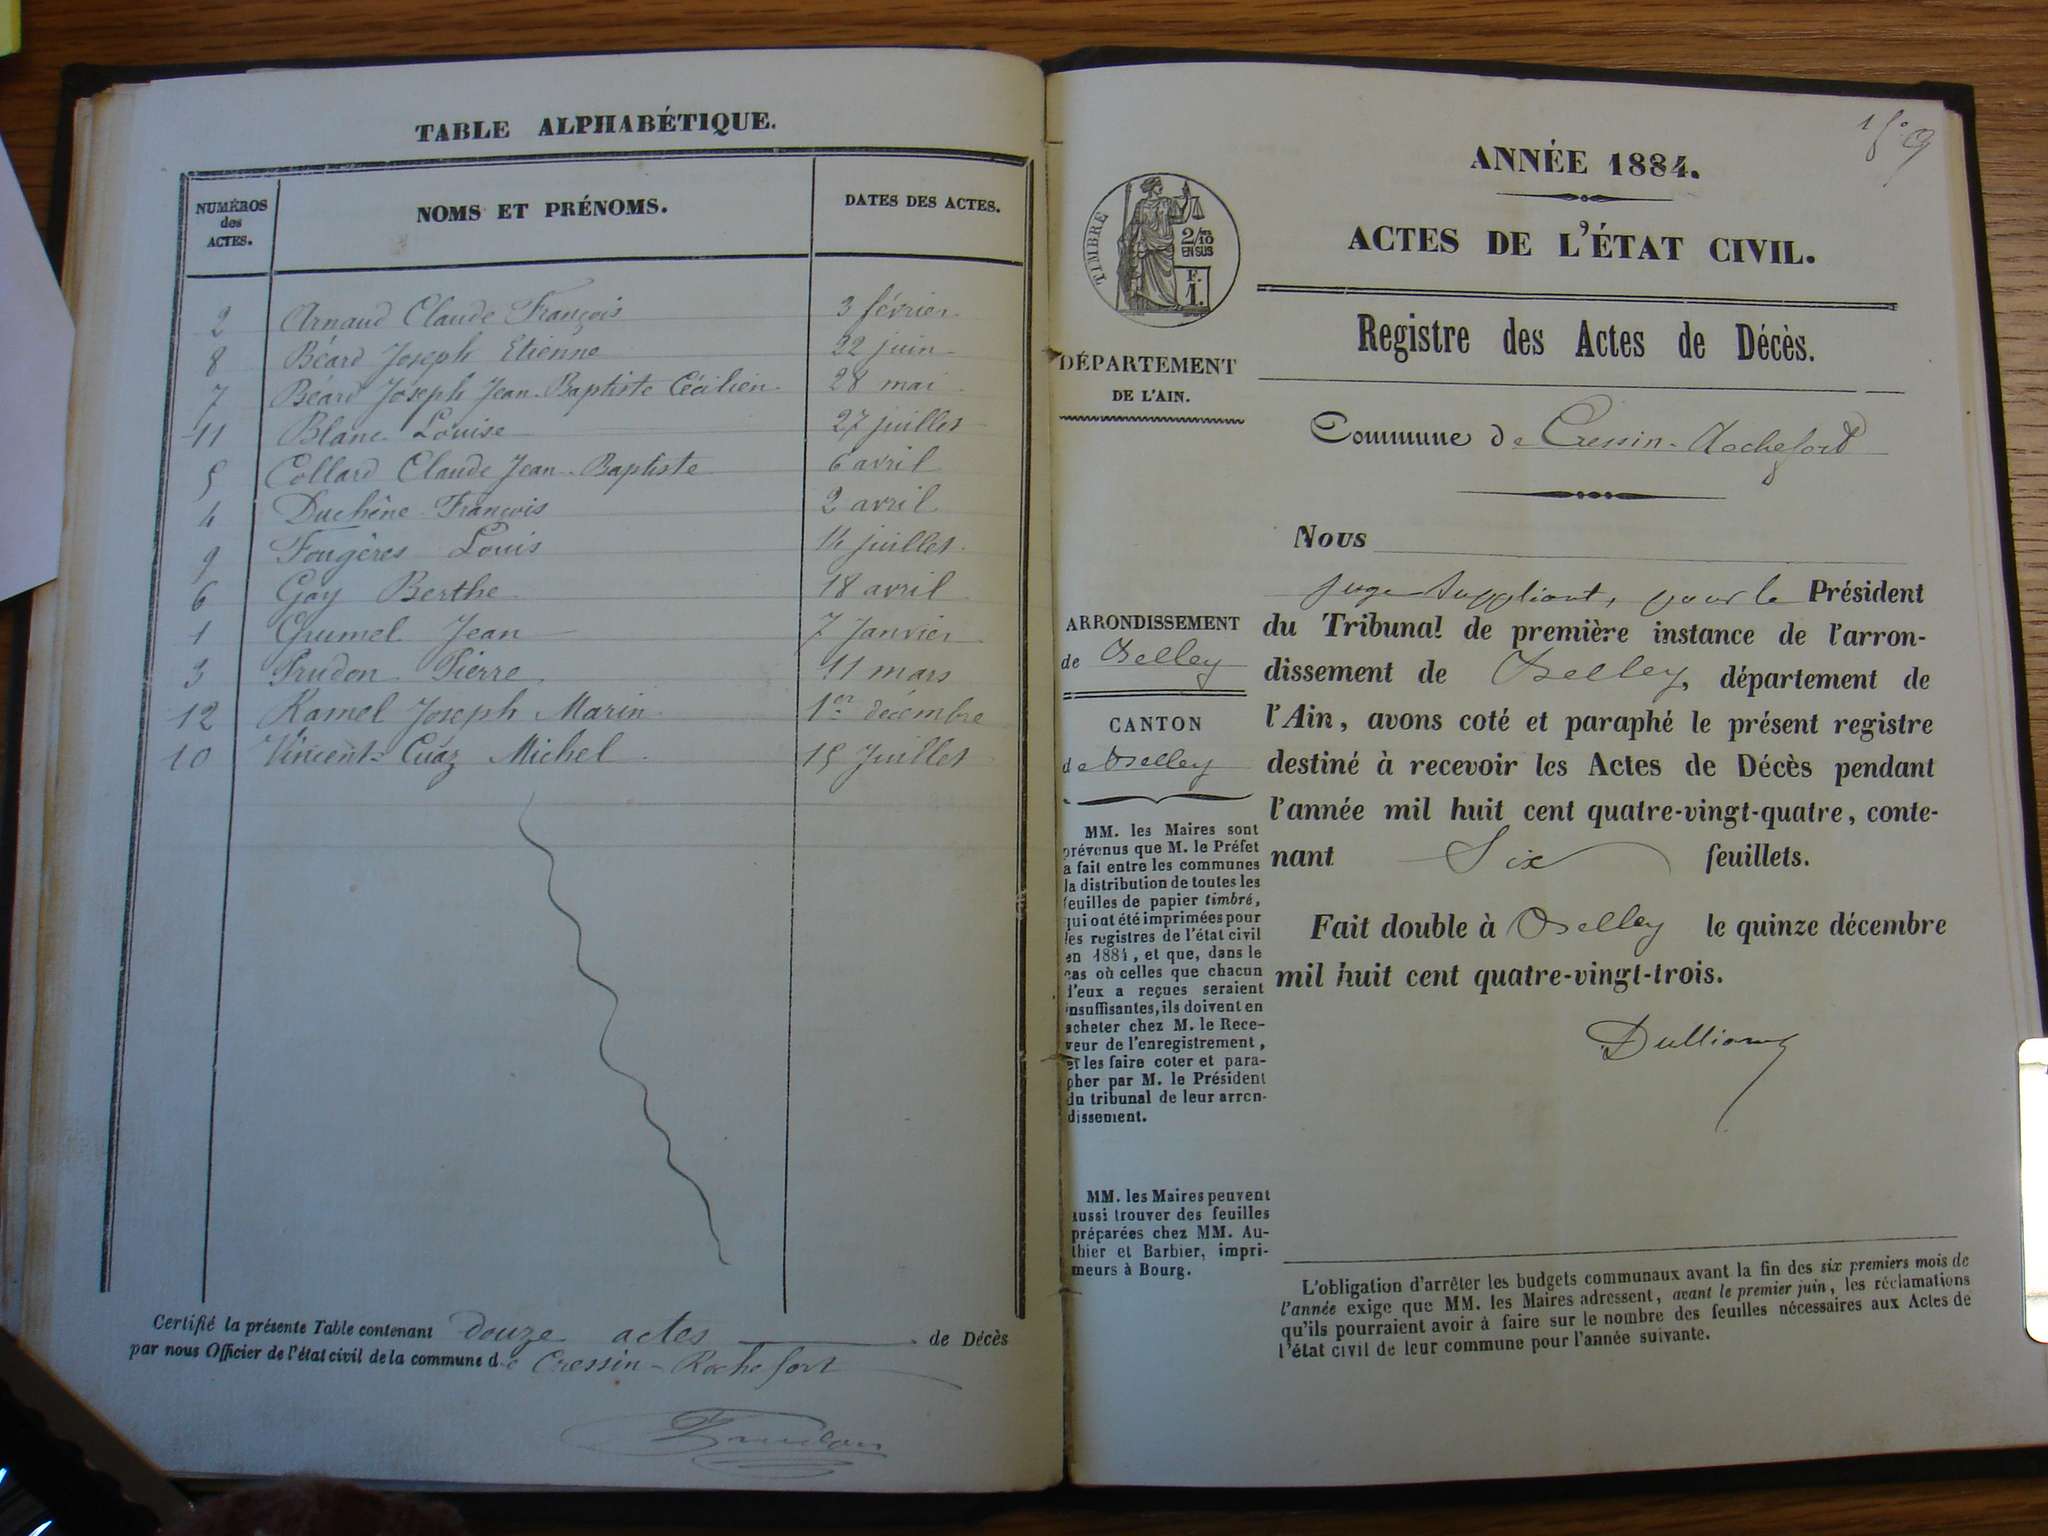 TABLE ALPHABÉTIQUE.
NUMÉROS des ACTES. NOMS ET PRÉNOMS. DATES DES ACTES.
2 Arnaud Claude François 3 février
8 Béard Joseph Etienne 22 juin
7 Béard Joseph Jean-Baptiste Cécilien 28 mai
11 Blanc Louise 27 juillet
5 Collard Claude Jean-Baptiste 6 avril
4 Duchêne François 2 avril
9 Fougères Louis 14 juillet
6 Goy Berthe 18 avril
1 Grumel Jean 7 Janvier
3 Prudon Pierre 11 mars
12 Ramel Joseph Marin 1er décembre
10 Vincent-Cuaz Michel 15 Juillet
Certifié la présente Table contenant douze actes de Décès
par nous Officier de l'état civil de la commune de Cressin-Rochefort
Prudon
ANNÉE 1884.
ACTES DE L'ÉTAT CIVIL.
TIMBRE
2/10
EN SUS
F.
1.
Registre des Actes de Décès.
DÉPARTEMENT
DE L'AIN.
Commune de Cressin-Rochefort
Nous
juge suppléant, pour le Président
du Tribunal de première instance de l'arron-
dissement de Belley, département de
l'Ain, avons coté et paraphé le présent registre
destiné à recevoir les Actes de Décès pendant
l'année mil huit cent quatre-vingt-quatre, conte-
nant Six feuillets.
Fait double à Belley le quinze décembre
mil huit cent quatre-vingt-trois.
ARRONDISSEMENT
de Belley
CANTON
de Belley
MM. les Maires sont
prévenus que M. le Préfet
a fait entre les communes
la distribution de toutes les
feuilles de papier timbré,
qui ont été imprimées pour
les registres de l'état civil
en 1884, et que, dans le
cas où celles que chacun
d'eux a reçues seraient
insuffisantes, ils doivent en
acheter chez M. le Rece-
veur de l'enregistrement,
et les faire coter et para-
pher par M. le Président
du tribunal de leur arron-
dissement.
MM. les Maires peuvent
aussi trouver des feuilles
préparées chez MM. Au-
thier et Barbier, impri-
meurs à Bourg.
L'obligation d'arrêter les budgets communaux avant la fin des six premiers mois de
l'année exige que MM. les Maires adressent, avant le premier juin, les réclamations
qu'ils pourraient avoir à faire sur le nombre des feuilles nécessaires aux Actes de
l'état civil de leur commune pour l'année suivante.